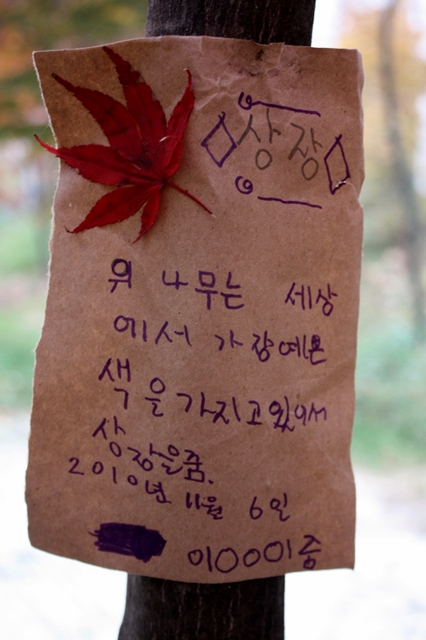 상장
위 나무는 세상
에서 가장예쁜
색을 가지고있어서
상장을줌.
2010년 11월 6일
이○○이줌